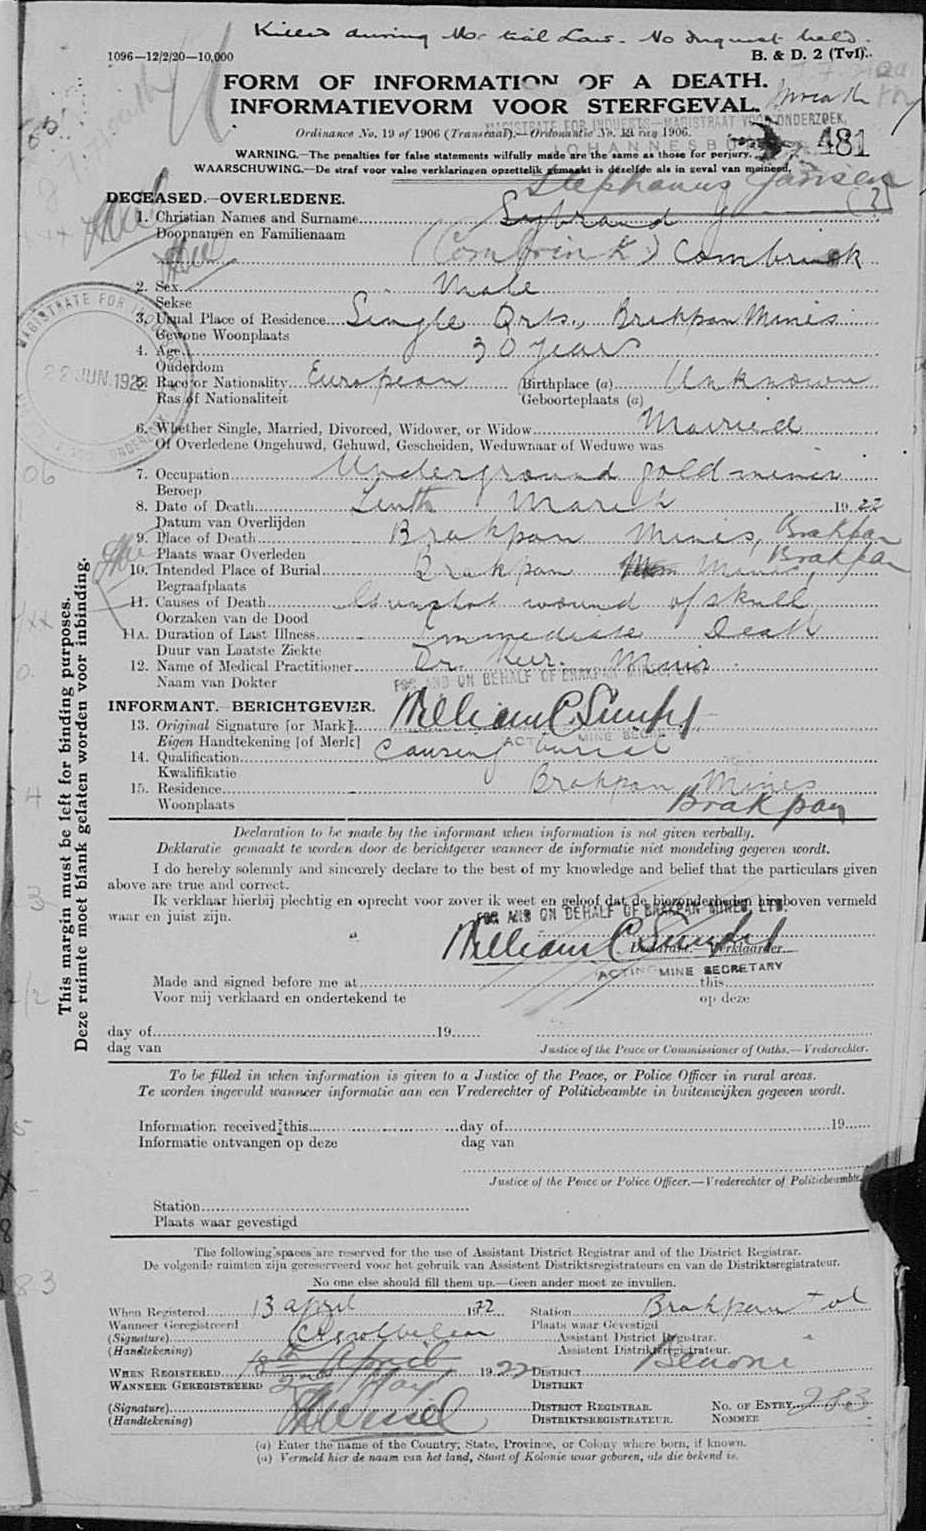 Killed during Martial Law. No Inquest held.
1096—12/2/20—10,000 B. & D. 2 (Tvl)..
FORM OF INFORMATION OF A DEATH.
INFORMATIEVORM VOOR STERFGEVAL.
MAGISTRATE FOR INQUESTS—MAGISTRAAT VOOR ONDERZOEK,
Ordinance No. 19 of 1906 (Transvaal).—Ordonnantie No. 19 van 1906.
JOHANNESBURG
WARNING.—The penalties for false statements wilfully made are the same as those for perjury. 481
WAARSCHUWING.—De straf voor valse verklaringen opzettelik gemaakt is dezelfde als in geval van meineed.
Stephanus Jansen
DECEASED.—OVERLEDENE. (?)
1. Christian Names and Surname Sybrand J
Doopnamen en Familienaam
(Combrink) Combrink
2. Sex Male
Sekse
3. Usual Place of Residence Single Qrts., Brakpan Mines
Gewone Woonplaats
4. Age 30 years
Ouderdom
5. Race or Nationality European Birthplace (a) Unknown
Ras of Nationaliteit Geboorteplaats (a)
MAGISTRATE FOR
22 JUN. 1922
6. Whether Single, Married, Divorced, Widower, or Widow Married
Of Overledene Ongehuwd, Gehuwd, Gescheiden, Weduwnaar of Weduwe was
7. Occupation Underground gold miner
Beroep
8. Date of Death Tenth March 1922
Datum van Overlijden
9. Place of Death Brakpan Mines, Brakpan
Plaats waar Overleden
10. Intended Place of Burial Brakpan Mines, Brakpan
Begraafplaats
11. Causes of Death Gunshot wound of skull
Oorzaken van de Dood
11A. Duration of Last Illness Immediate Death
Duur van Laatste Ziekte
12. Name of Medical Practitioner Dr. Keer. Mines
Naam van Dokter
FOR AND ON BEHALF OF BRAKPAN MINES, LTD.
INFORMANT.—BERICHTGEVER.
13. Original Signature [or Mark] William C
Eigen Handtekening [of Merk]
ACTING MINE SECRETARY
14. Qualification Causing burial
Kwalifikatie
15. Residence Brakpan Mines
Woonplaats Brakpan
Declaration to be made by the informant when information is not given verbally.
Deklaratie gemaakt te worden door de berichtgever wanneer de informatie niet mondeling gegeven wordt.
I do hereby solemnly and sincerely declare to the best of my knowledge and belief that the particulars given
above are true and correct.
Ik verklaar hierbij plechtig en oprecht voor zover ik weet en geloof dat de biezonderheden hierboven vermeld
waar en juist zijn.
FOR AND ON BEHALF OF BRAKPAN MINES, LTD.
William C
Declarant.—Verklaarder.
ACTING MINE SECRETARY
Made and signed before me at this
Voor mij verklaard en ondertekend te op deze
day of 19
dag van Justice of the Peace or Commissioner of Oaths.—Vrederechter.
To be filled in when information is given to a Justice of the Peace, or Police Officer in rural areas.
Te worden ingevuld wanneer informatie aan een Vrederechter of Politiebeambte in buitenwijken gegeven wordt.
Information received this day of 19
Informatie ontvangen op deze dag van
Justice of the Peace or Police Officer.—Vrederechter of Politiebeambte.
Station
Plaats waar gevestigd
The following spaces are reserved for the use of Assistant District Registrar and of the District Registrar.
De volgende ruimten zijn gereserveerd voor het gebruik van Assistent Distriktsregistrateurs en van de Distriktsregistrateur.
No one else should fill them up.—Geen ander moet ze invullen.
When Registered 13 april 1922 Station Brakpan
Wanneer Geregistreerd Plaats waar Gevestigd
(Signature) Assistant District Registrar.
(Handtekening) Assistent Distriktsregistrateur.
WHEN REGISTERED 18th April 1922 DISTRICT Benoni
WANNEER GEREGISTREERD 2nd May DISTRIKT
(Signature) DISTRICT REGISTRAR. NO. OF ENTRY 283
(Handtekening) DISTRIKTSREGISTRATEUR. NOMMER
(a) Enter the name of the Country, State, Province, or Colony where born, if known.
(a) Vermeld hier de naam van het land, Staat of Kolonie waar geboren, als die bekend is.
This margin must be left for binding purposes.
Deze ruimte moet blank gelaten worden voor inbinding.